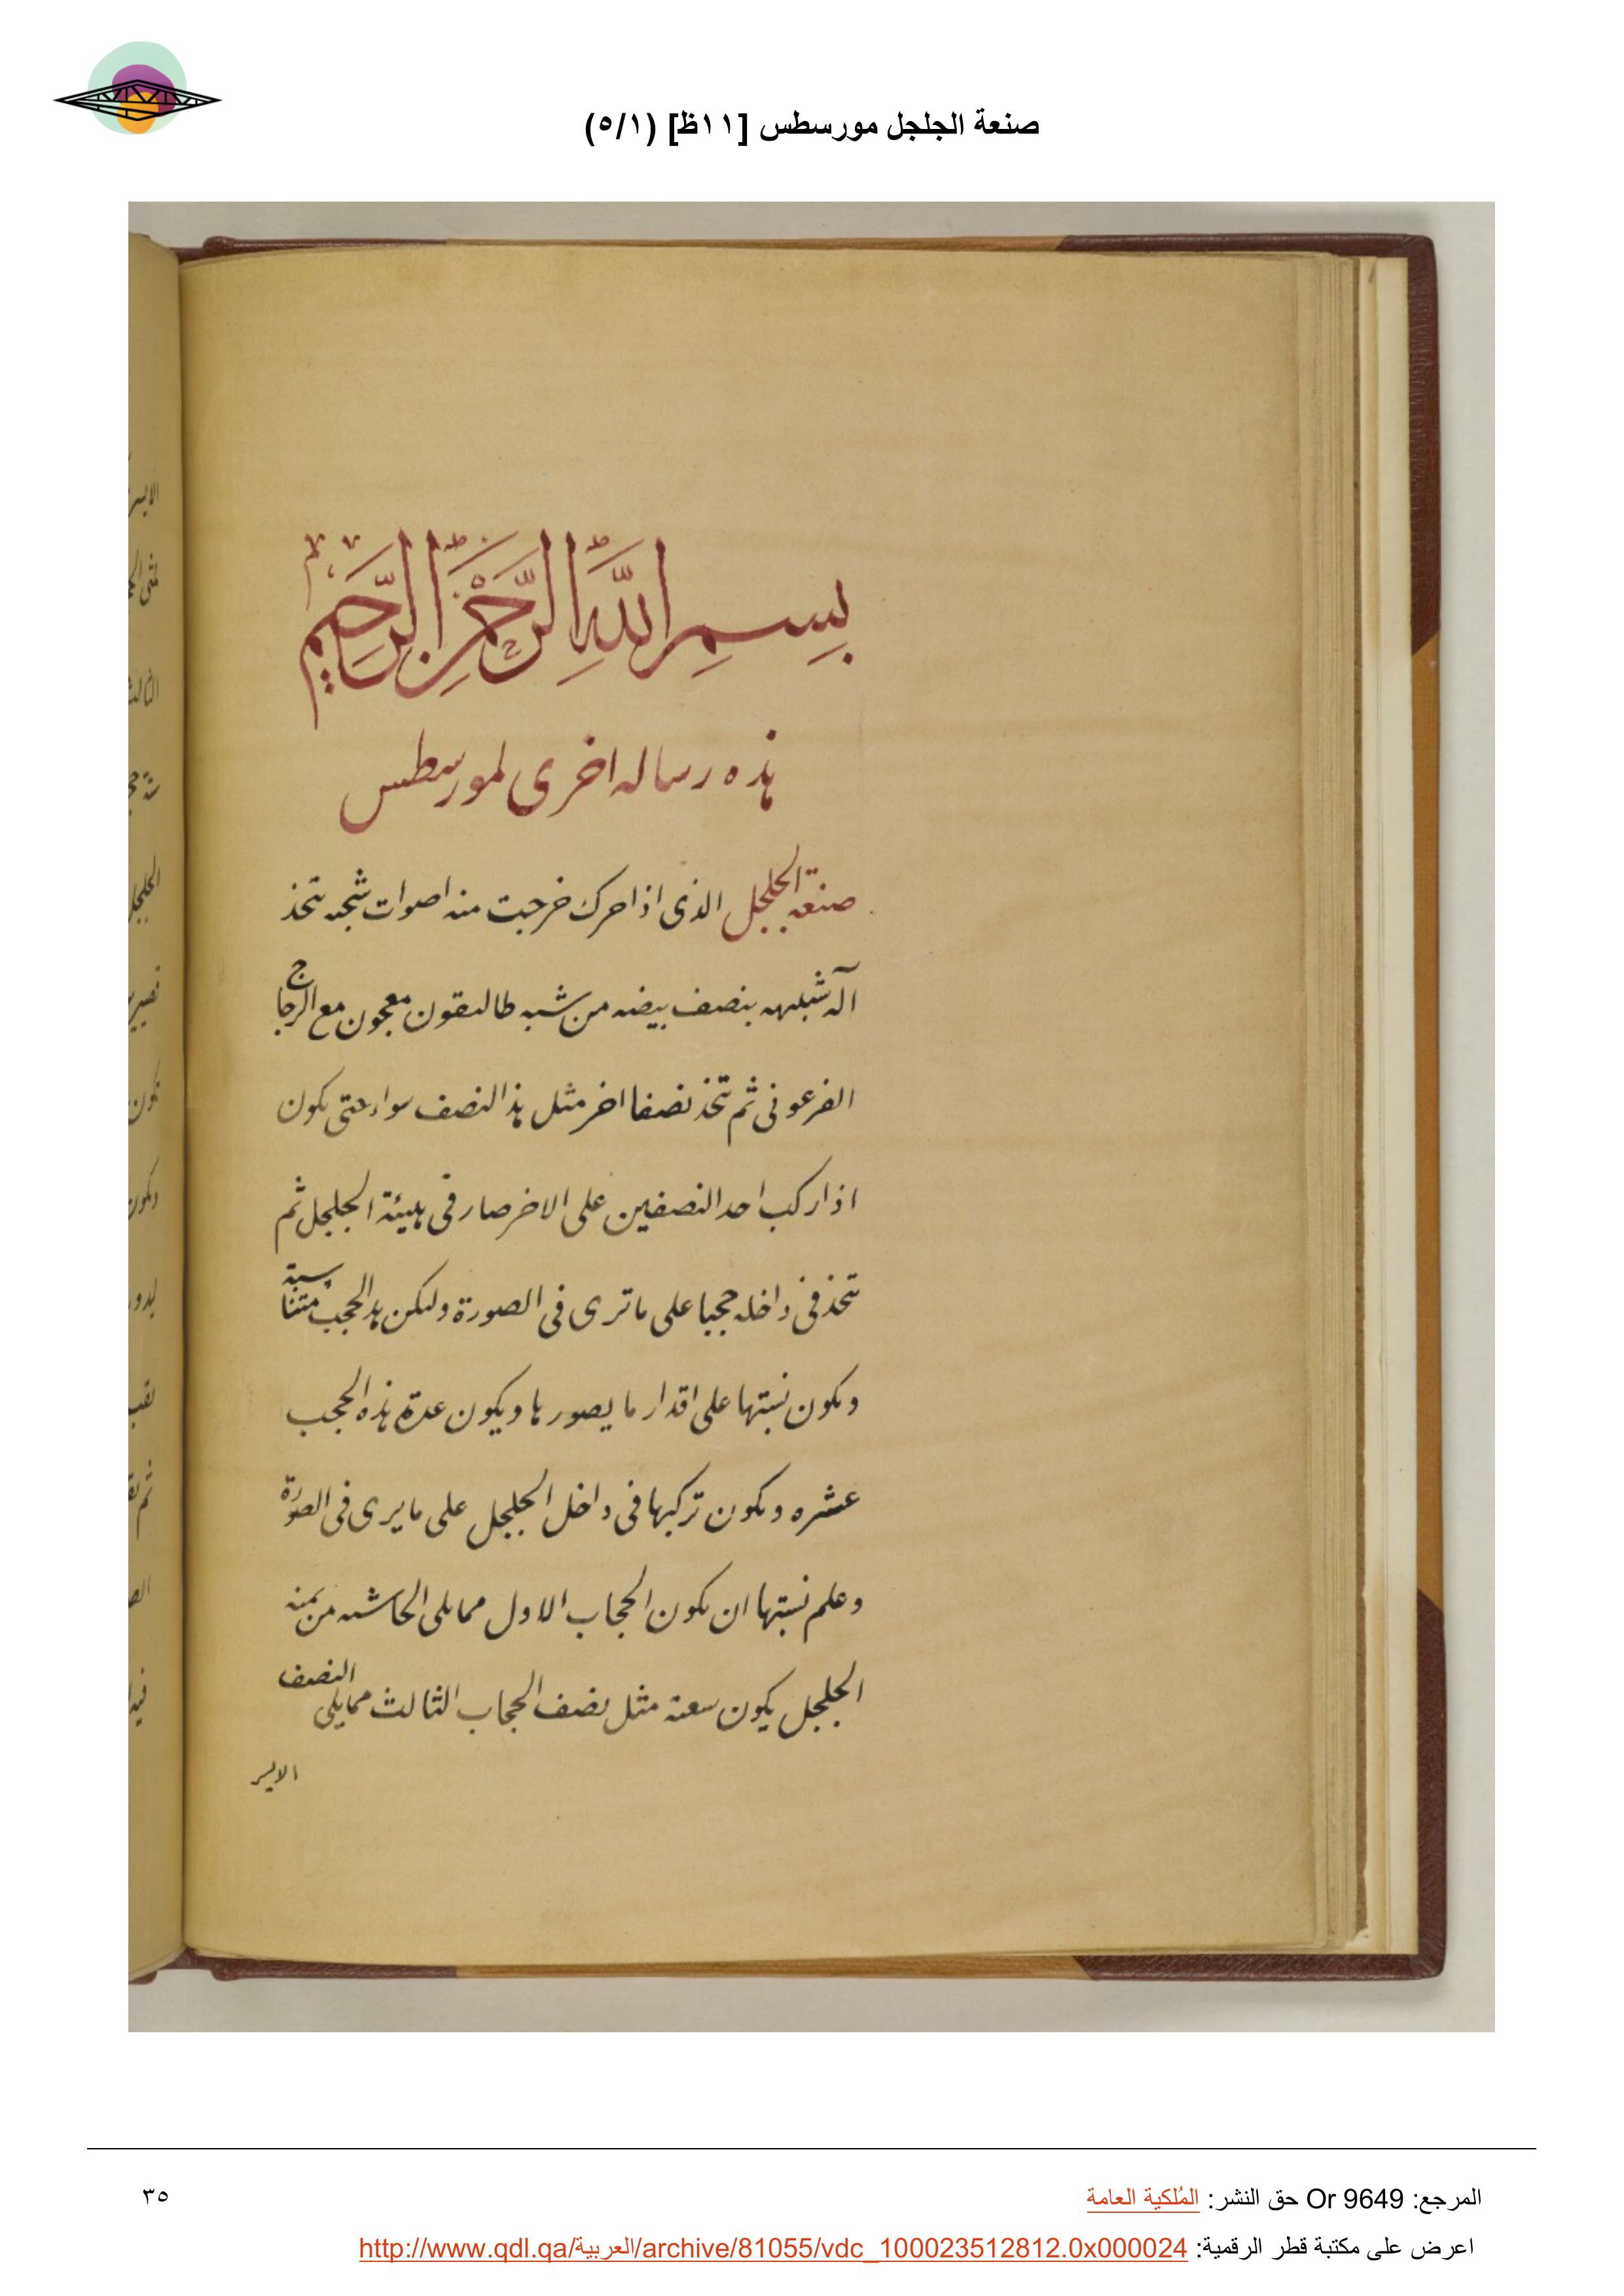 صنعة الجلجل مورسطس [١١ظ] (٥/١)
بِسمِ اللّٰهِ الرَّحْمٰنِ الرَّحيم
هذه رساله اخرى لمورسطس
صنعة الجلجل الذى اذا حرك خرجت منه اصوات شجيه تتخذ
آله شبيهه بنصف بيضه من شبه طاليقون معجون مع الزجاج
الفرعونى ثم تتخذ نصفا اخر مثل هذا النصف سواء حتى يكون
اذا ركب احد النصفين على الاخر صار فى هيئة الجلجل ثم
تتخذ فى داخله حجبا على ما ترى فى الصورة وليكن هذه الحجب متناسبة
ويكون نسبتها على اقدار ما يصورها ويكون عدة هذه الحجب
عشره ويكون تركيبها فى داخل الجلجل على ما يرى فى الصورة
وعلم نسبتها ان يكون الحجاب الاول مما يلى الحاشيه من يمنه
الجلجل يكون سعته مثل نصف الحجاب الثالث مما يلى النصف
الايسر
المرجع: Or 9649 حق النشر: المُلكية العامة
٣٥
اعرض على مكتبة قطر الرقمية: http://www.qdl.qa/العربية/archive/81055/vdc_100023512812.0x000024